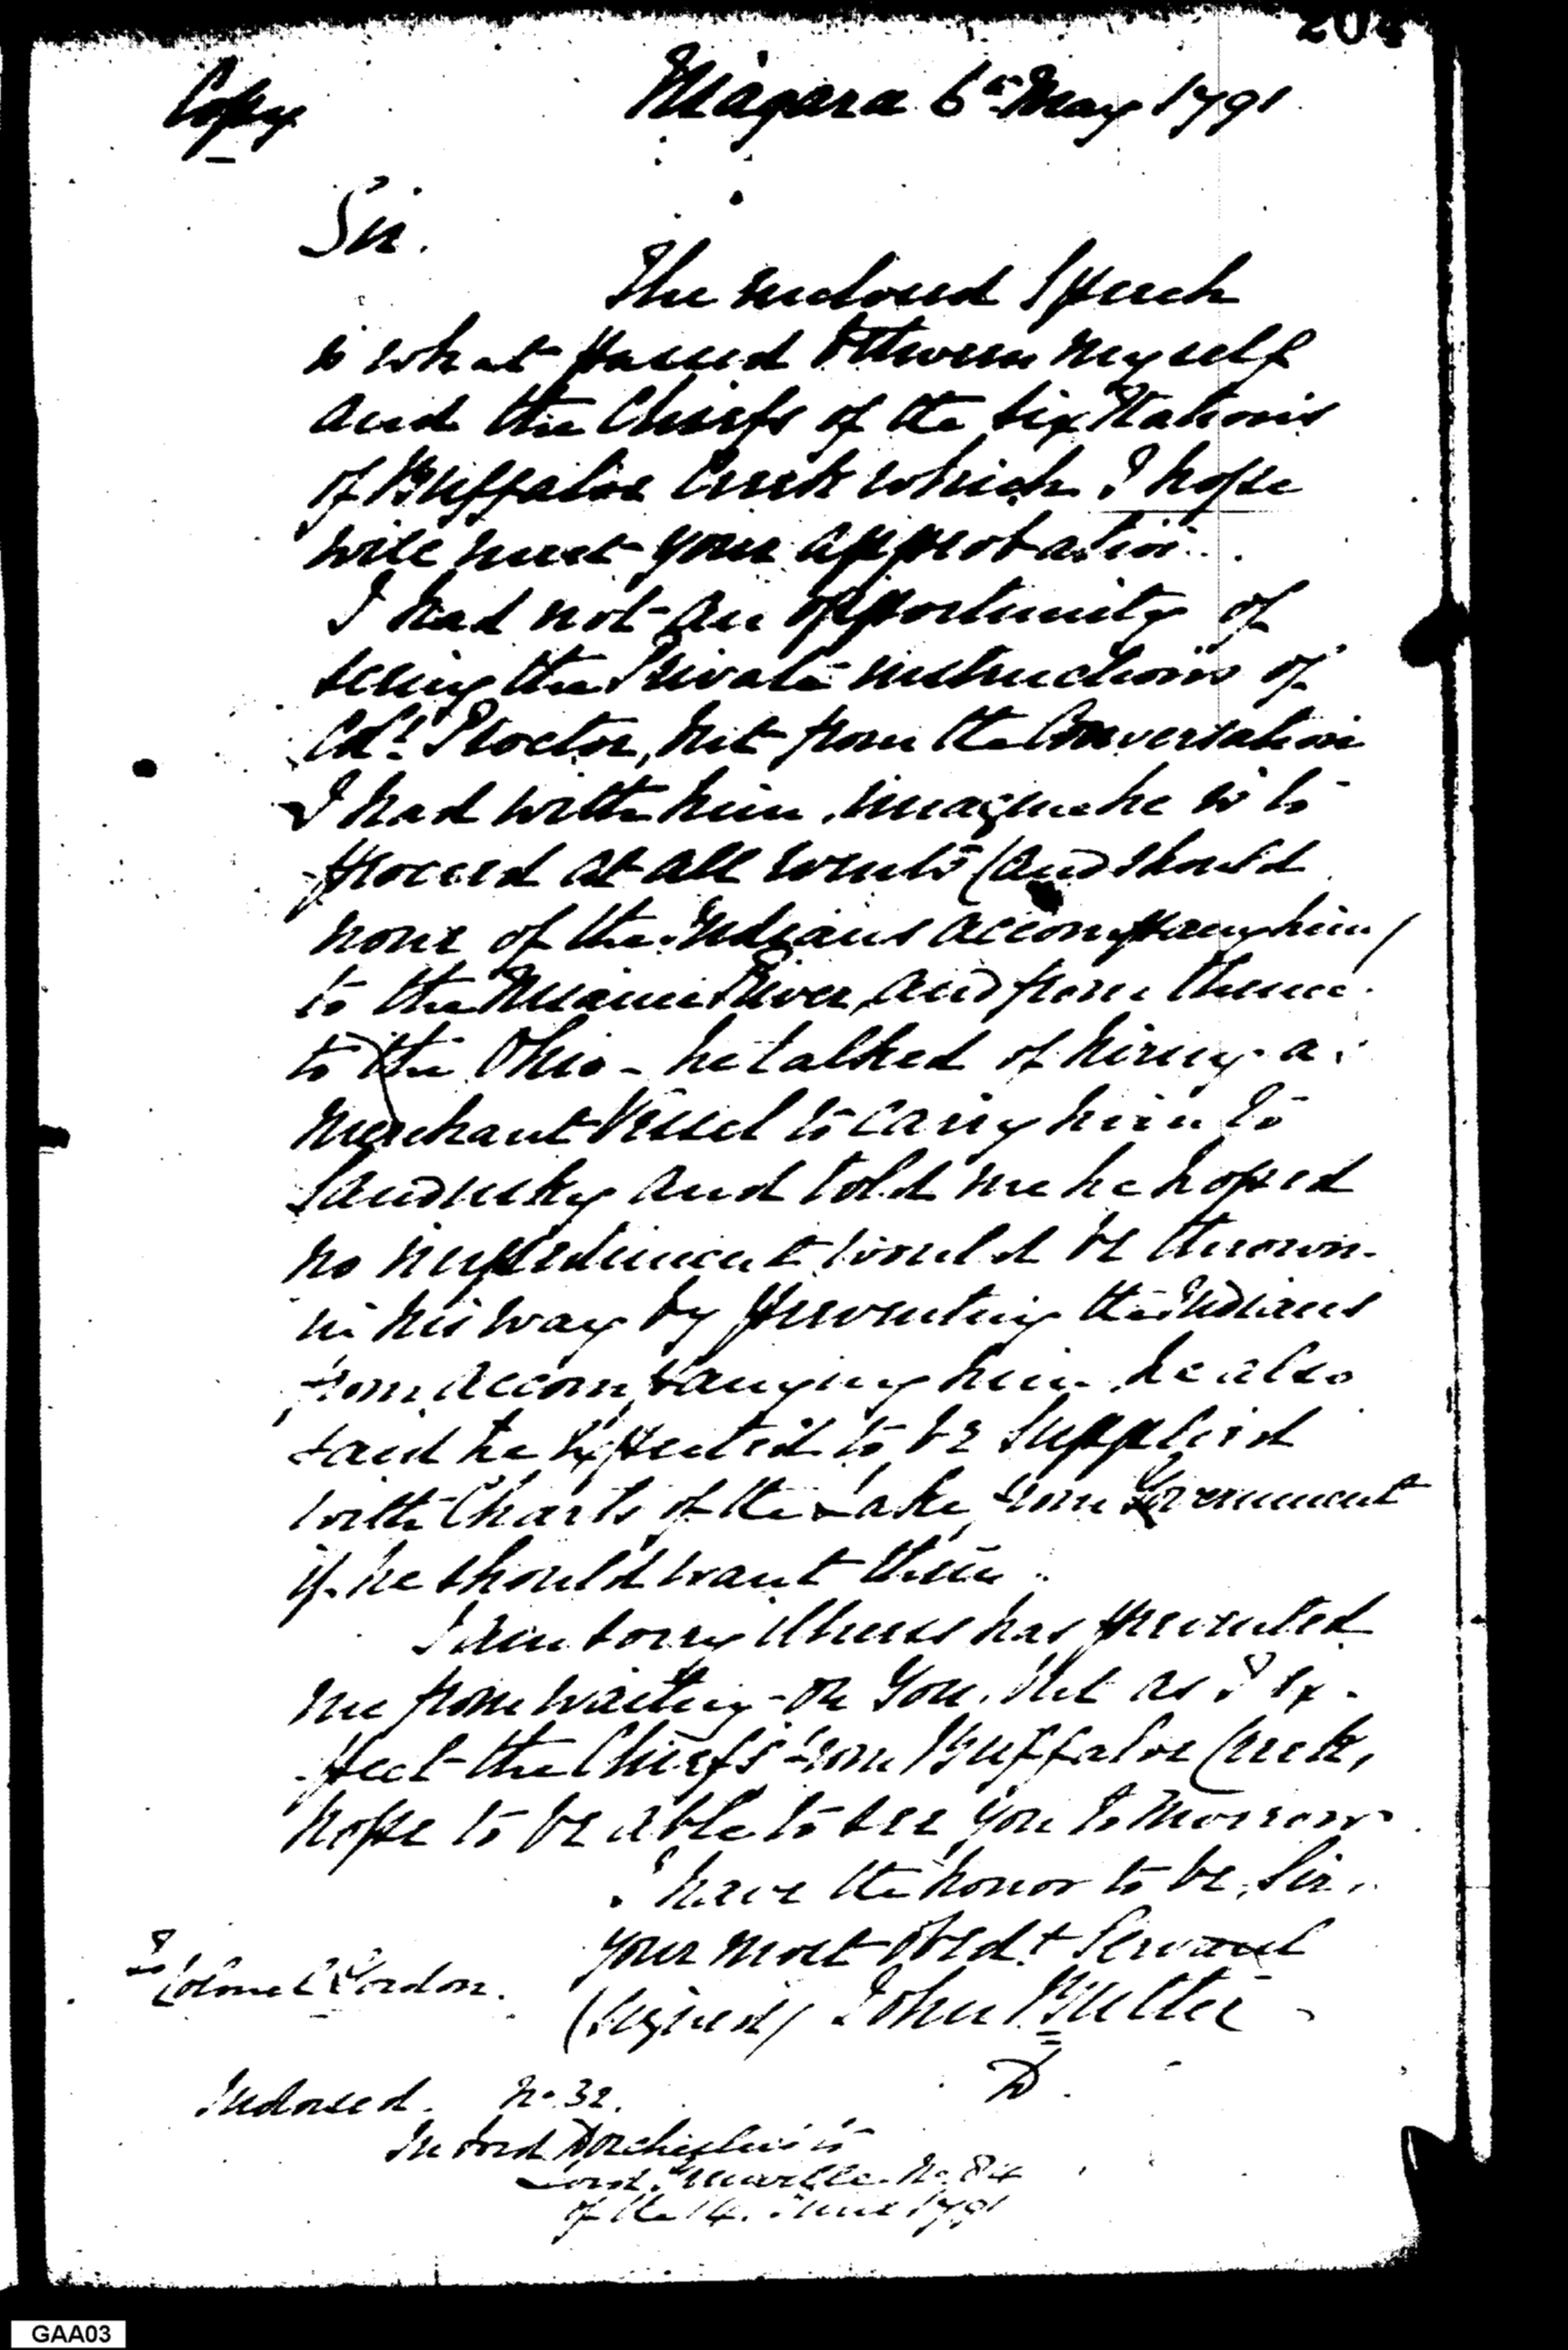 204
Copy Niagara 6th May 1791
Sir.
The enclosed Speech
is what passed between myself
and the Chiefs of the Six Nations
of Buffaloe Creek which I hope
will meet your approbation.
I had not an opportunity of
seeing the Private instructions of
Col! Proctor, but from the Conversation
I had with him, imagine he is to
proceed at all events (and should
none of the Indians accompany him)
to the Miamie River, and from thence
to the Ohio - he talked of hiring a
Merchant Vessel to carry him to
Sandusky and told me he hoped
no impediment would be thrown
in his way by preventing the Indians
from accompanying him he also
said he expected to be supplied
with Charts of the Lake from Government
if he should want them.
I am sorry illness has prevented
me from waiting on You. but as I ex-
pect the Chiefs from Buffaloe Creek,
hope to be able to see you to Morrow
I have the honor to be, Sir,
your most obed.t Servant
To
Colonel Gordon.
(Signed) John Butler
D.
Indorsed. No. 32.
In Lord Dorchester's to
Lord Grenville No. 84
of the 14. June 1791
GAA03